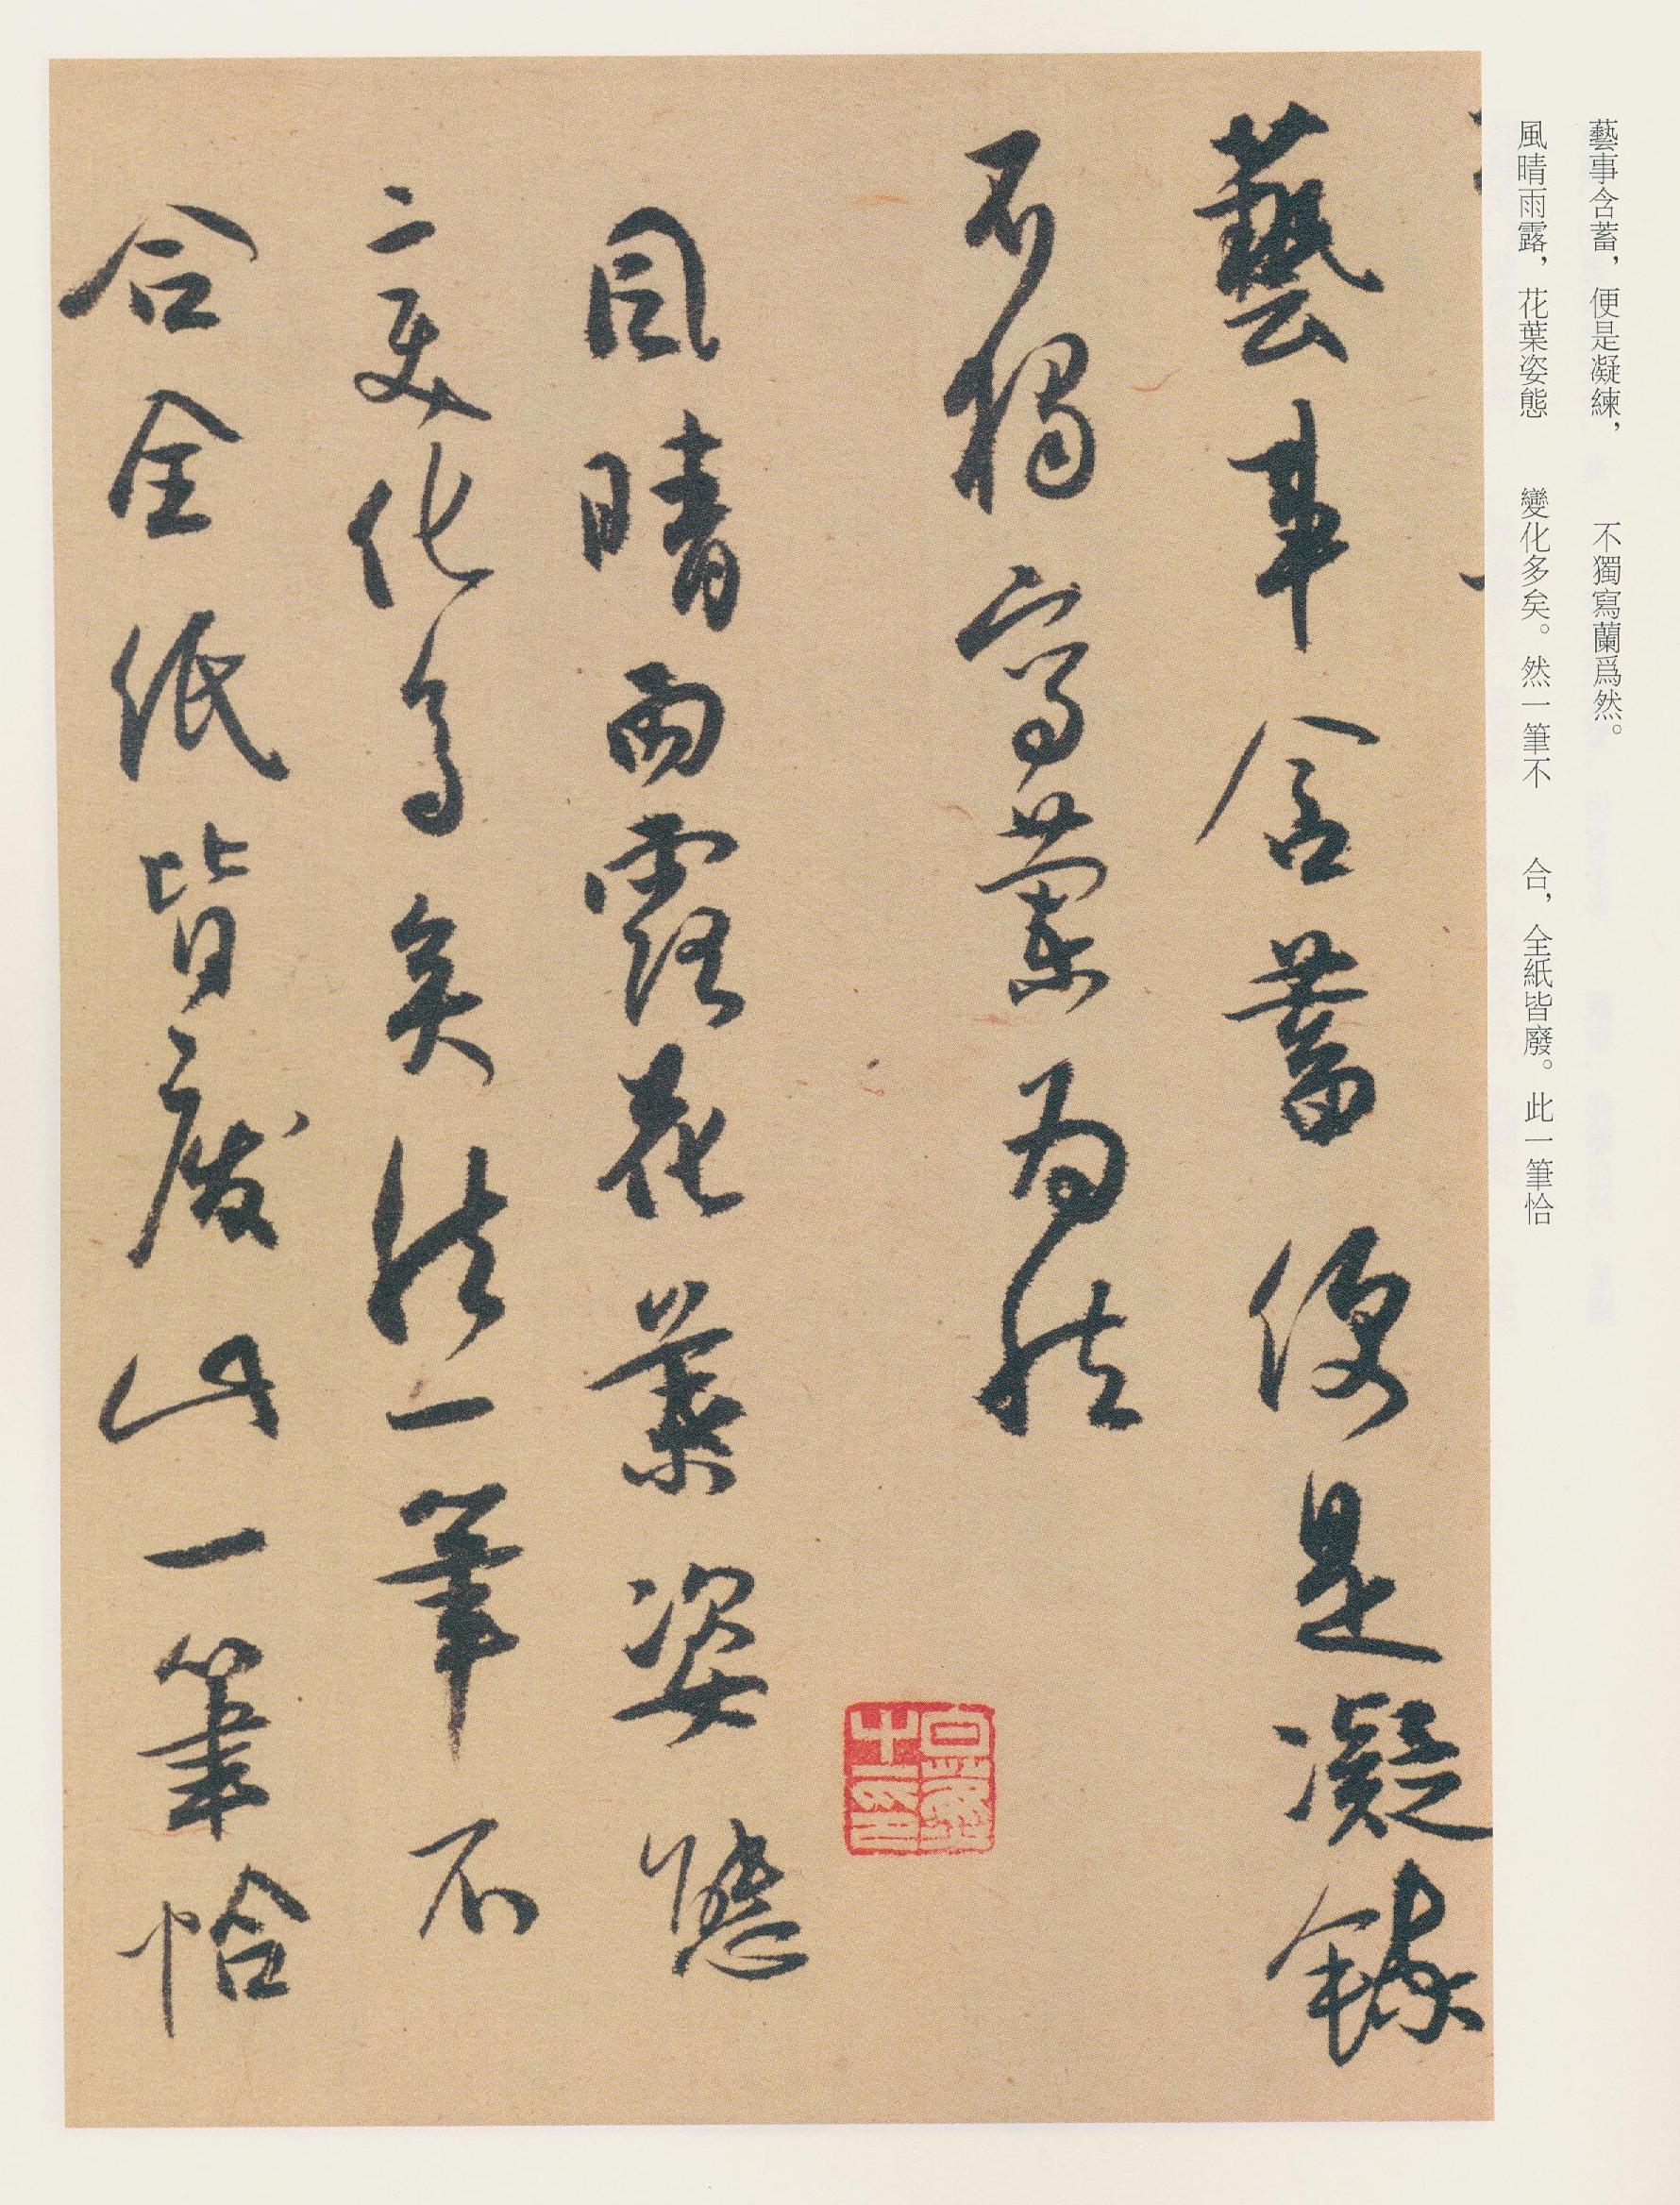 藝事含蓄，便是凝練，　不獨寫蘭爲然。
風晴雨露，花葉姿態　變化多矣。然一筆不　合，全紙皆廢。此一筆恰
藝事含蓄便是凝鍊
不獨寫蘭為然
風晴雨露花葉姿態
變化多矣然一筆不
合全紙皆廢此一筆恰